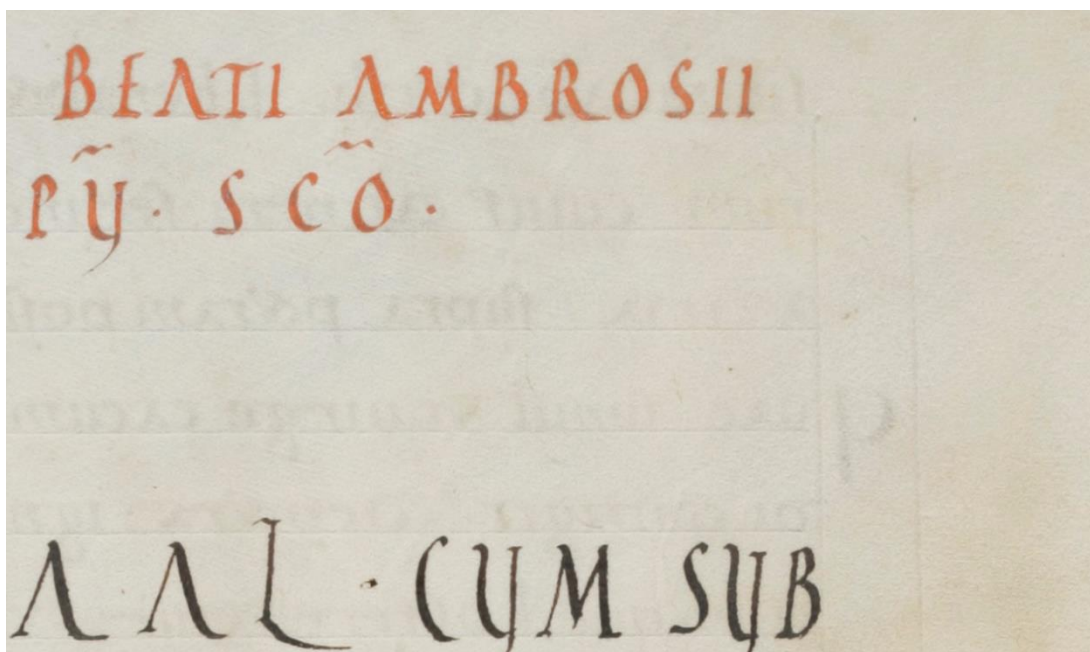 BEATI AMBROSII
PỸ. SCÕ.
A AL · CUM SUB